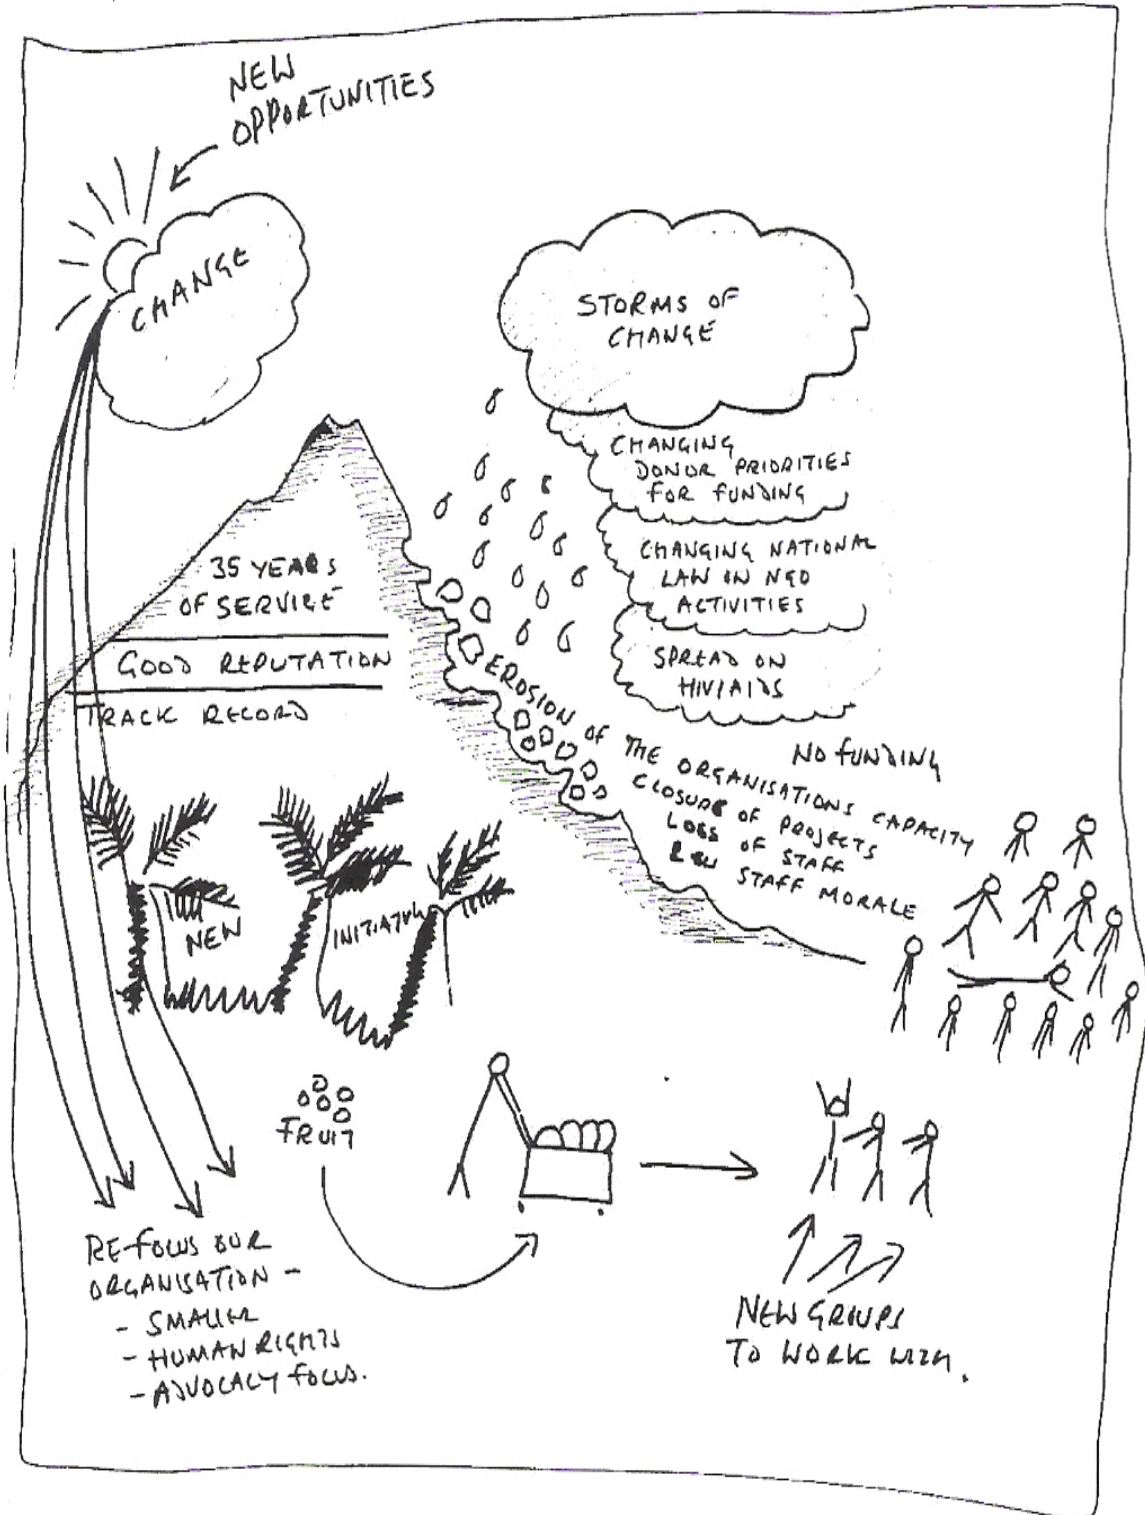 NEW
OPPORTUNITIES
CHANGE
STORMS OF
CHANGE
CHANGING
DONOR PRIORITIES
FOR FUNDING
CHANGING NATIONAL
LAW ON NGO
ACTIVITIES
SPREAD ON
HIV/AIDS
35 YEARS
OF SERVICE
GOOD REPUTATION
TRACK RECORD
EROSION OF THE ORGANISATIONS CAPACITY
CLOSURE OF PROJECTS
LOSS OF STAFF
LOW STAFF MORALE
NO FUNDING
NEW
FRUIT
RE-FOCUS OUR
ORGANISATION -
- SMALLER
- HUMAN RIGHTS
- ADVOCACY FOCUS.
NEW GROUPS
TO WORK WITH.